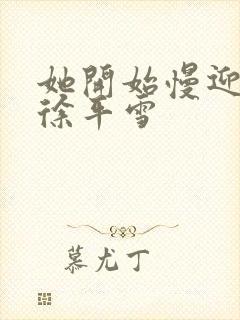 她開始慢迎
徐平雪
慕尤丁